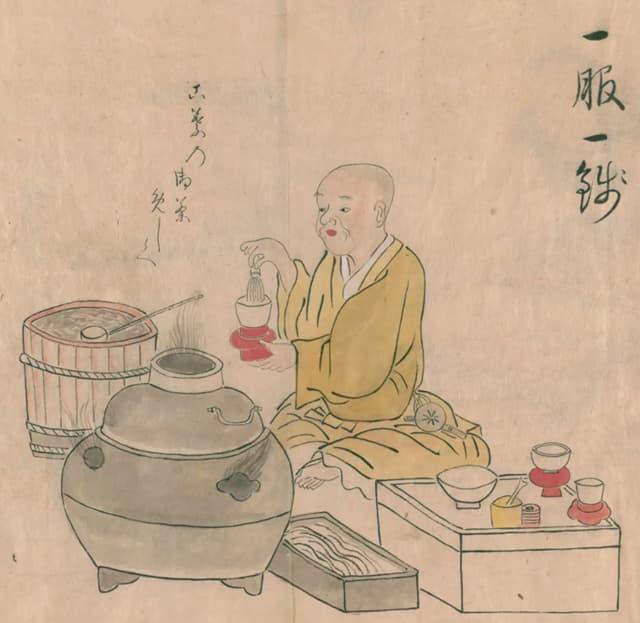 一服一銭
こ葉の御茶
めし候へ